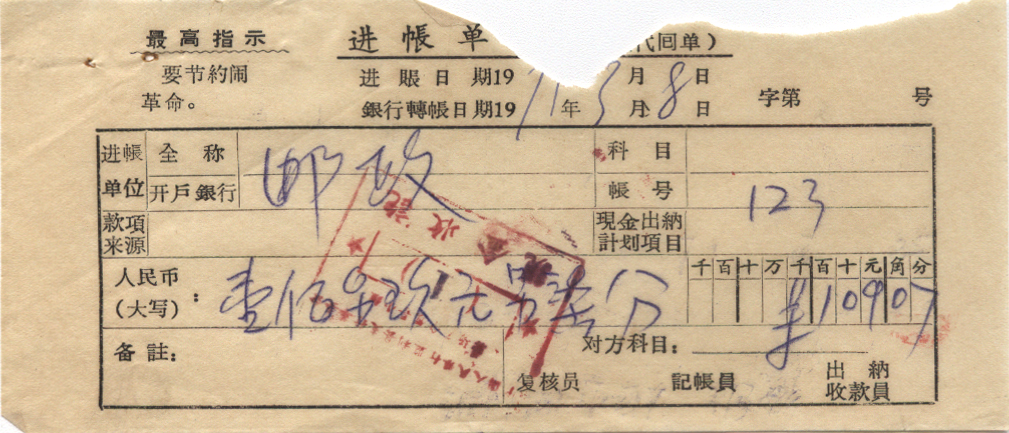 最高指示
要节約闹
革命。
进帳单 代回单)
进賬日期19 月 日
銀行轉帳日期19 71年3月8日
字第 号
进帳单位 全称 邮政 科目
开戶銀行 帳号 123
款項来源 現金出納計划項目
人民币(大写): 壹佰零玖元零柒分 千百十万千百十元角分 ¥10907
备註: 对方科目:
复核員 記帳員 出納收款員
現金收訖